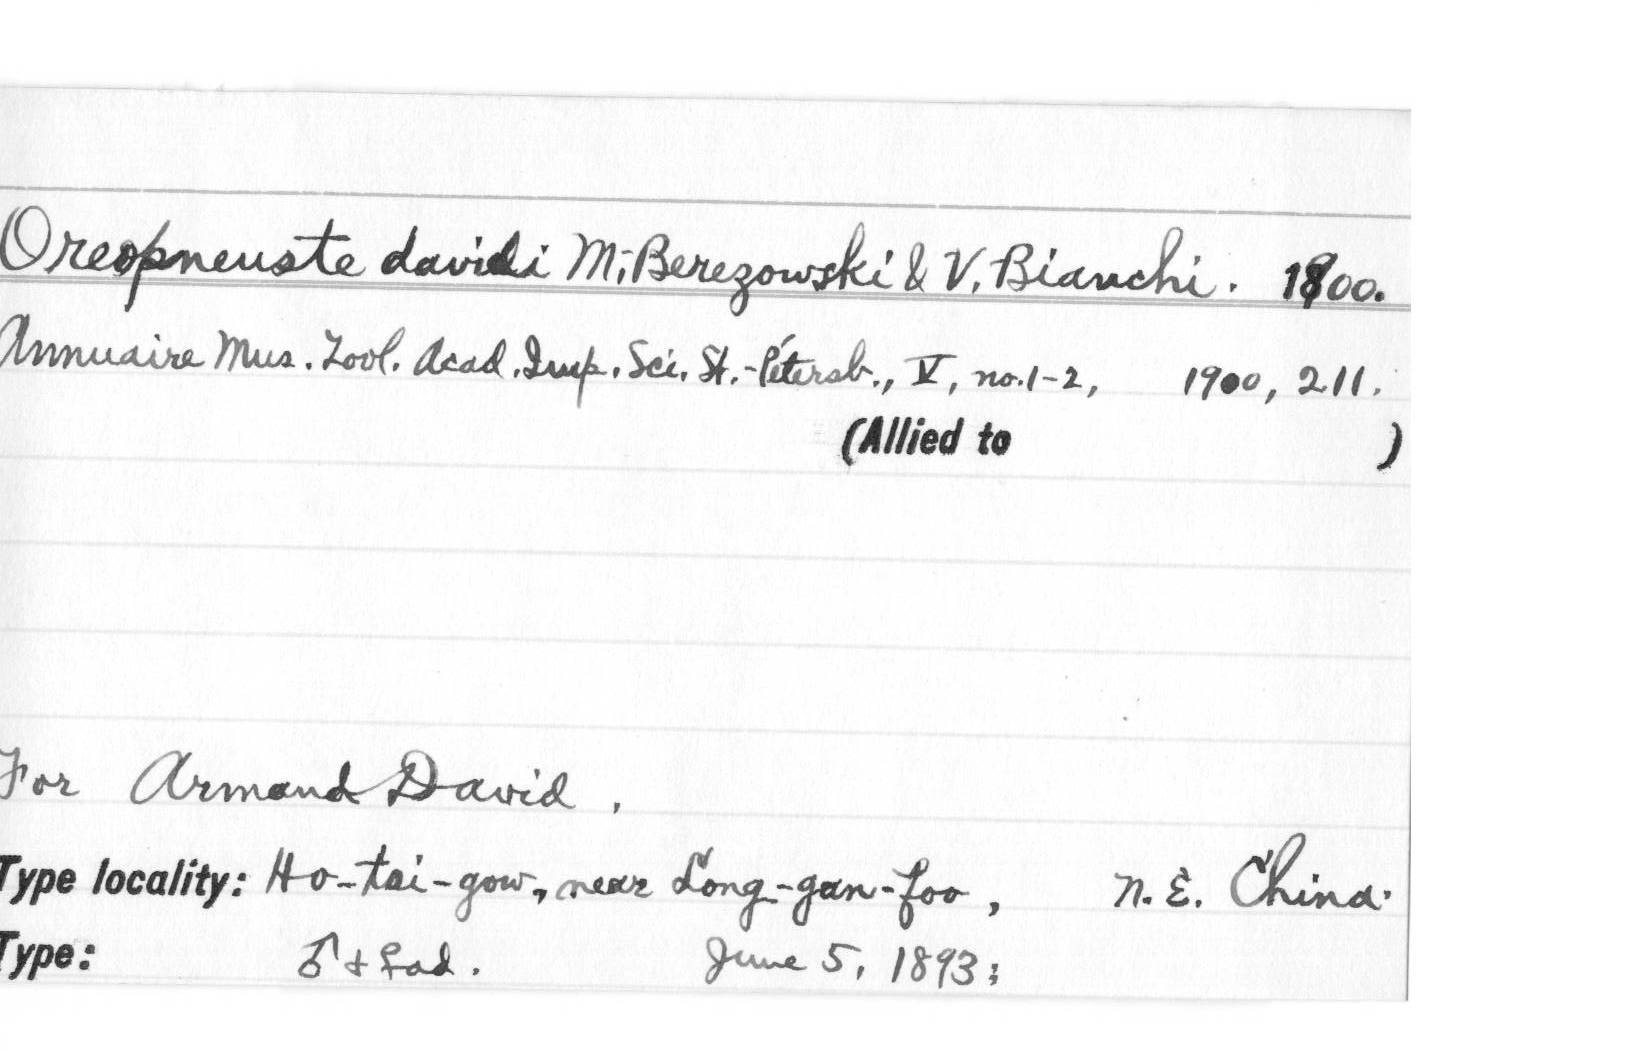 Oreopneuste davidi M. Berezowski & V. Bianchi. 1900.
Annuaire Mus. Zool. Acad. Imp. Sci. St.-Pétersb., V, no. 1-2, 1900, 211.
(Allied to )
For Armand David.
Type locality: Ho-tai-gow, near Long-gan-foo, N. E. China.
Type: ♂ + ♀ ad. June 5, 1893;